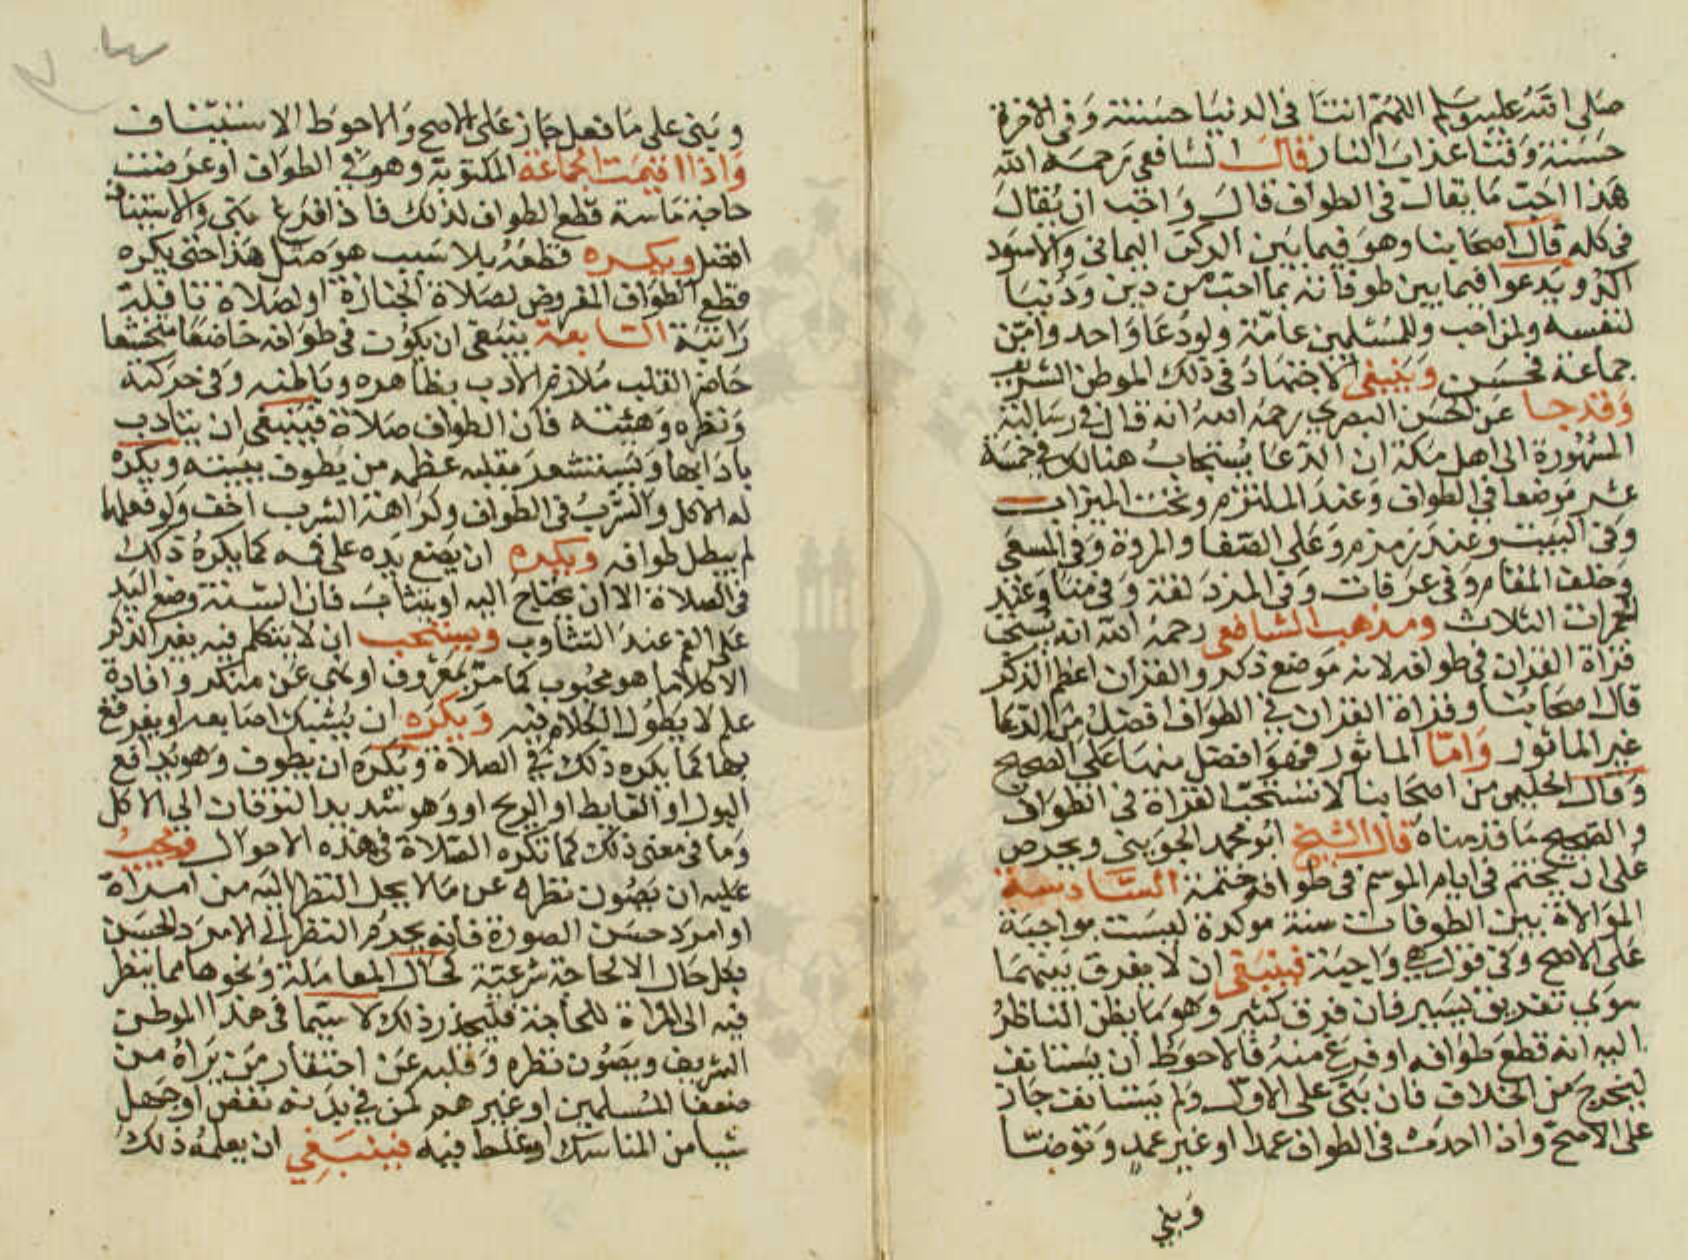 صلى الله عليه وسلم اللهم اتنا فى الدنيا حسنة وفى الاخرة
حسنة وقنا عذاب النار قال الشافعي رحمه الله
هذا احب ما يقال فى الطواف قال واحب ان يقال
فى كله قال اصحابنا وهو فيما بين الركن اليمانى والاسود
اكد ويدعوا فيما بين طوفاته بما احب من دين ودنيا
لنفسه ولمن احب وللمسلمين عامة ولو دعا واحد وامن
جماعة فحسن وينبغى الاجتهاد فى ذلك الموطن الشريف
وقد جا عن الحسن البصري رحمه الله انه قال في رسالته
المشهورة الى اهل مكة ان الدعا يستجاب هنالك في خمسة
عشر موضعا في الطواف وعند الملتزم وتحت الميزاب
وفى البيت وعند زمزم وعلى الصفا والمروة وفى المسعى
وخلف المقام وفى عرفات وفى المزدلفة وفى منا وعند
الجمرات الثلاث ومذهب الشافعى رحمه الله انه يستحب
قراة القران في طوافه لانه موضع ذكر والقران اعظم الذكر
قال اصحابنا وقراة القران في الطواف افضل من الدعا
غير الماثور واما الماثور فهو افضل منها على الصحيح
وقال الحليمي من اصحابنا لا تستحب القراة فى الطواف
والصحيح ما قدمناه قال الشيخ ابو محمد الجويني ويحرص
على ان يختم فى ايام الموسم فى طوافه ختمة السادسة
الموالاة بين الطوفات سنة موكدة ليست بواجبة
على الاصح وفى قول هي واجبة فينبغى ان لا يفرق بينهما
سوى تفريق يسير فان فرق كثير وهو ما يظن الناظر
اليه انه قطع طوافه او فرغ منه فالاحوط ان يستانف
ليخرج من الخلاف فان بنى على الاول ولم يستانف جاز
على الاصح واذا احدث فى الطواف عمدا او غير عمد وتوضا
وبني
وبنى على ما فعل جاز على الاصح والاحوط الاستيناف
واذا اقيمت الجماعة المكتوبة وهو في الطواف او عرضت
حاجة ماسة قطع الطواف لذلك فاذا فرغ بنى والاستيناف
افضل ويكره قطعه بلا سبب هو مثل هذا حتى يكره
قطع الطواف المفروض لصلاة الجنازة او لصلاة نافلة
راتبة السابعة ينبغى ان يكون فى طوافه خاضعا متخشعا
حاضر القلب ملازم الادب بظاهره وباطنه وفى حركته
ونظره وهيئته فان الطواف صلاة فينبغى ان يتادب
بادابها ويستشعر بقلبه عظمه من يطوف ببيته ويكره
له الاكل والشرب فى الطواف وكراهة الشرب اخف ولو فعلهما
لم يبطل طوافه ويكره ان يضع يده على فيه كما يكره ذلك
فى الصلاة الا ان يحتاج اليه او يتثاب فان السنة وضع اليد
على الفم عند التثاوب ويستحب ان لا يتكلم فيه بغير الذكر
الا كلاما هو محبوب كامر بمعروف او نهى عن منكر وافادة
علم لا يطول الكلام فيه ويكره ان يشبك اصابعه او يفرقع
بها كما يكره ذلك في الصلاة ويكره ان يطوف وهو يدافع
البول او الغايط او الريح او وهو شديد التوقان الى الاكل
وما فى معنى ذلك كما تكره الصلاة فى هذه الاحوال ويجب
عليه ان يصون نظره عن ما لا يحل النظر اليه من امراة
او امرد حسن الصورة فانه يحرم النظر الى الامرد الحسن
بكل حال الا لحاجة شرعية كحال المعاملة ونحوها مما ينظر
فيه الى المراة للحاجة فليحذر ذلك لا سيما فى هذا الموطن
الشريف ويصون نظره وقلبه عن احتقار من يراه من
ضعفا المسلمين او غيرهم كمن في بدنه نقص او جهل
شيا من المناسك او غلط فيه فينبغي ان يعلمه ذلك